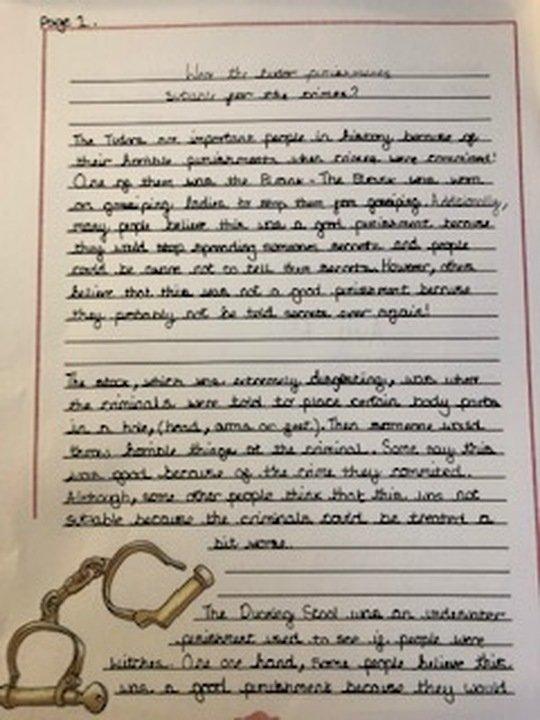 Page 1.
Were the tudor punishments
sutable for the crimes?
The Tudors are important people in history because of
their horrible punishments when crimes were commited!
One of them was the Brank. The Brank was worn
on gossiping ladies to stop them from gossiping. Additionally,
many people believe this was a good punishment because
they would stop spreading someones secrets and people
could be aware not to tell them secrets. However, others
believe that this was not a good punishment because
they probably not be told secrets ever again!
The stock, which was extremely disgusting, was where
the criminals were told to place certain body parts
in a hole, (head, arms or feet). Then someone would
throw horrible things at the criminal. Some say this
was good because of the crime they commited.
Although, some other people think that this was not
sutable because the criminals could be treated a
bit worse.
The Ducking Stool was an underwater
punishment used to see if people were
witches. One one hand, some people believe this
was a good punishment because they would